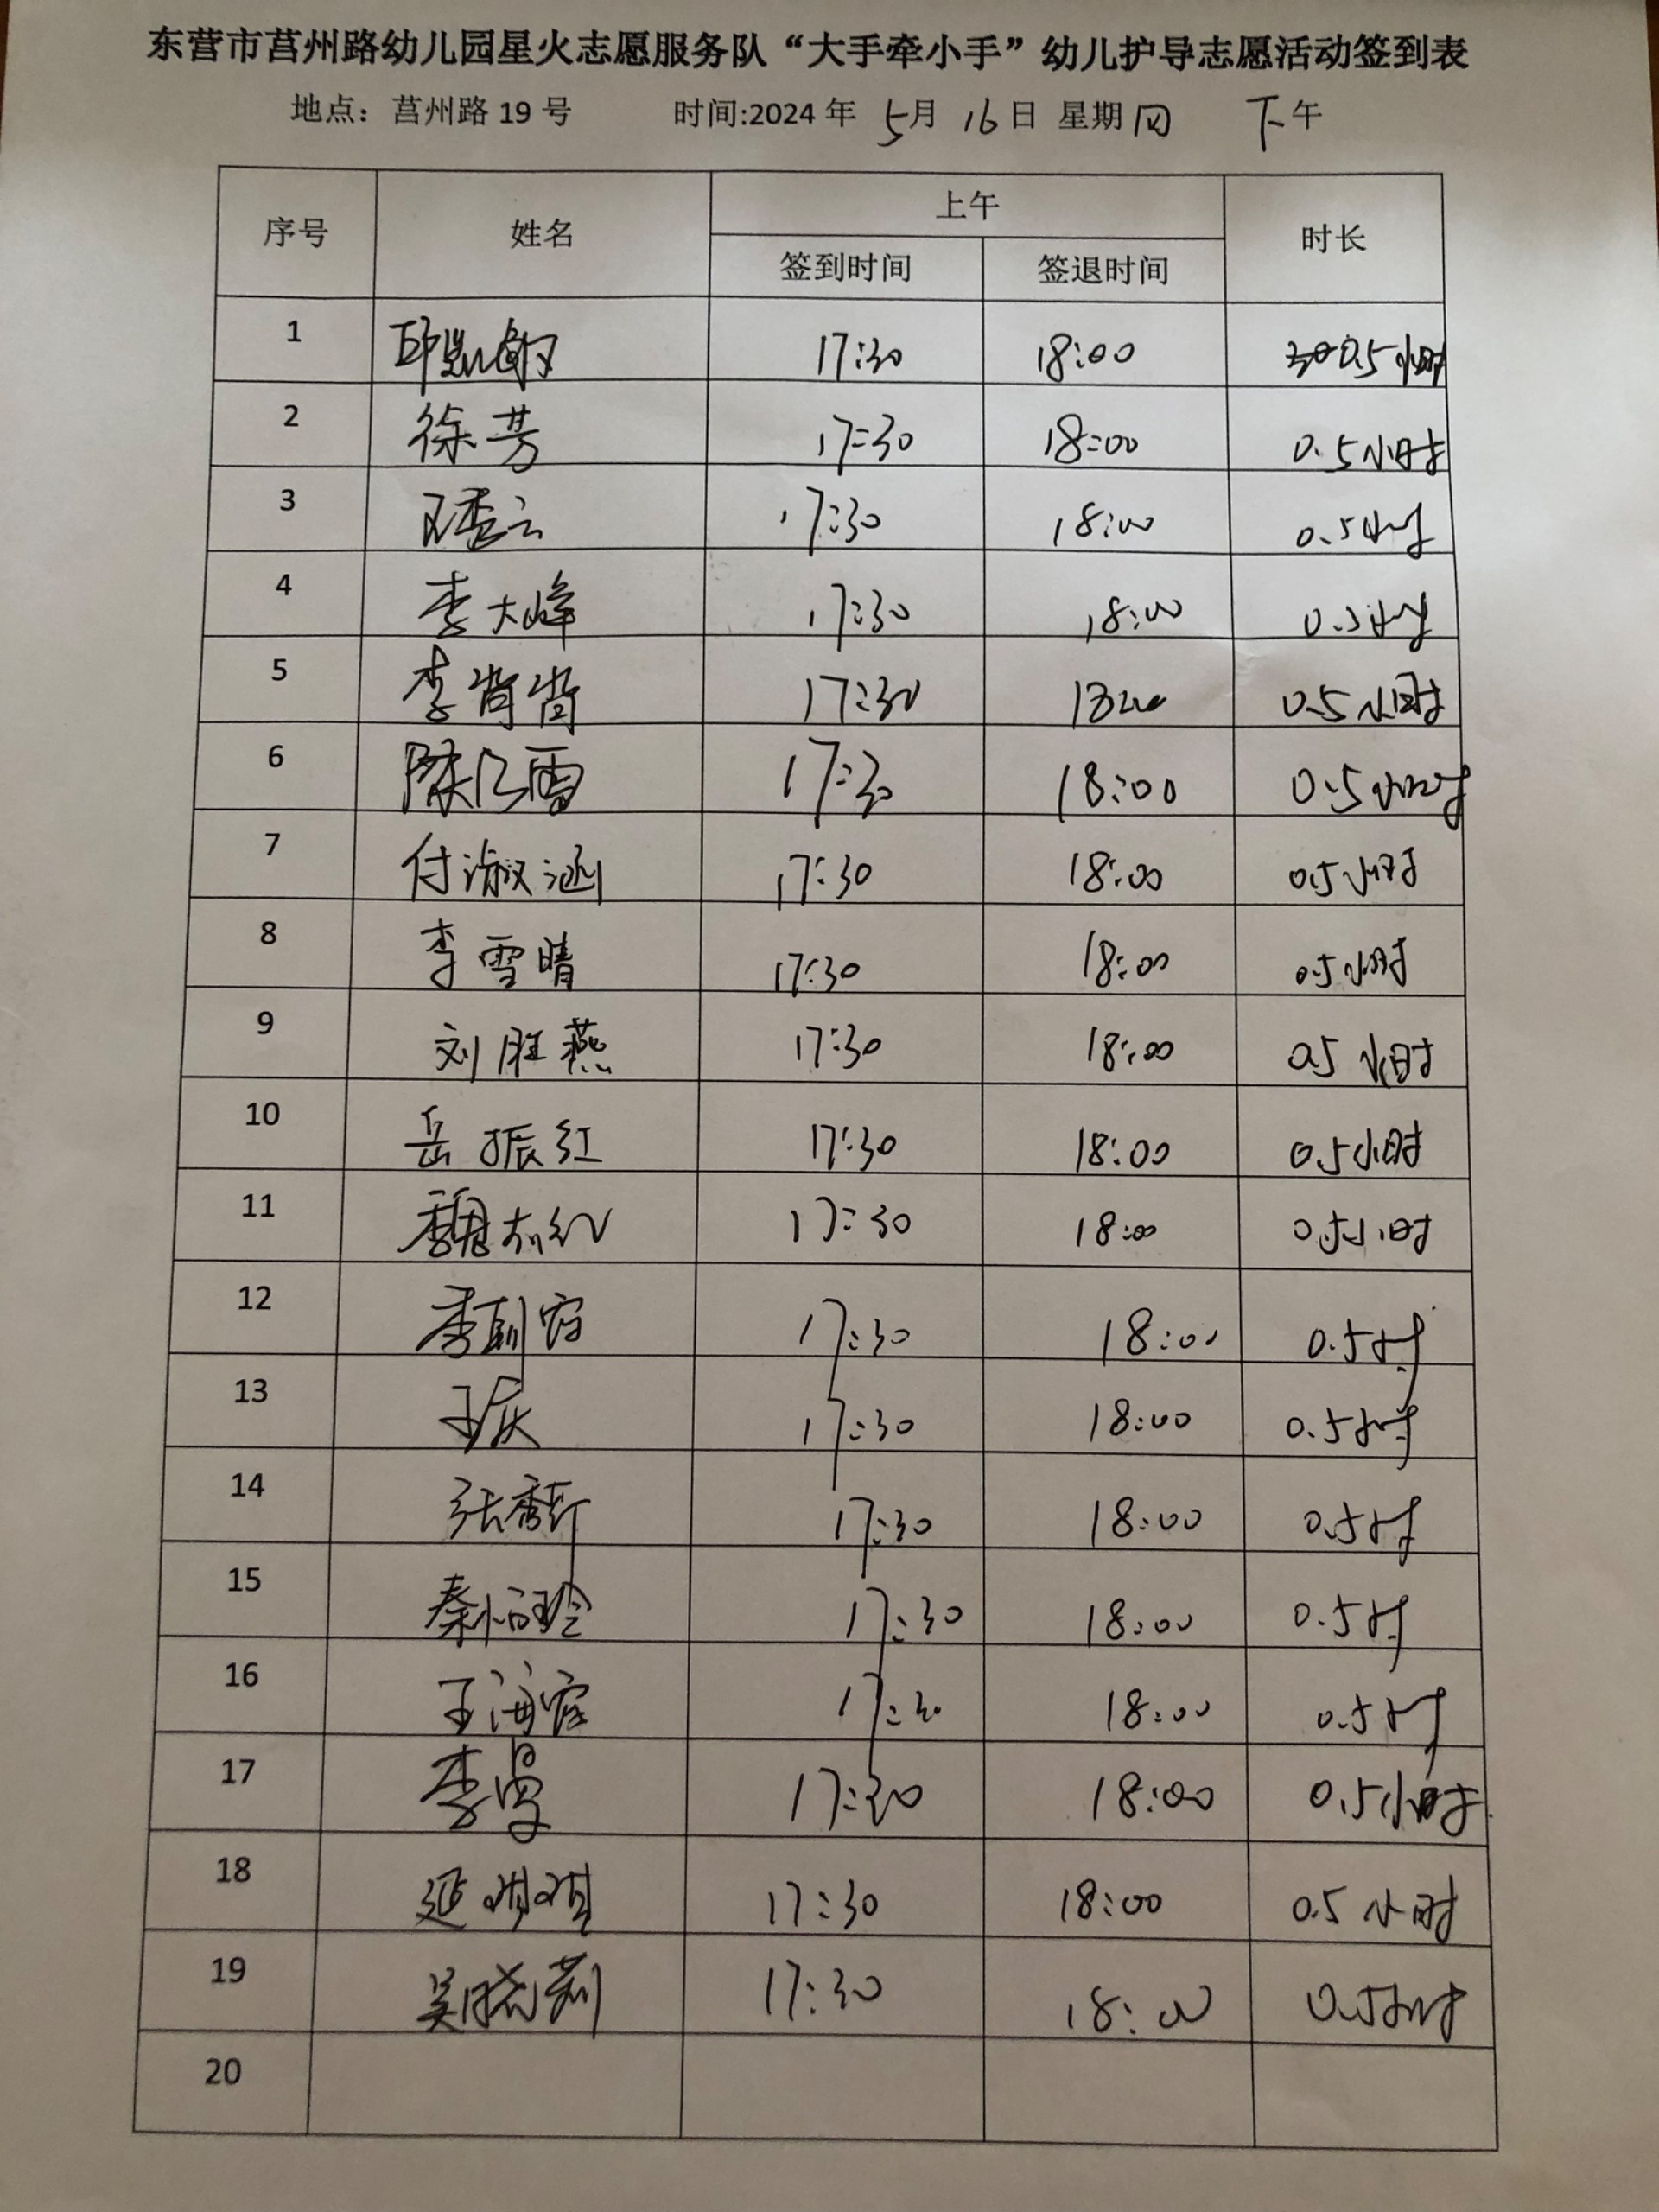 东营市莒州路幼儿园星火志愿服务队“大手牵小手”幼儿护导志愿活动签到表
地点：莒州路 19 号 时间:2024 年 5月 16日 星期 四 下午
序号 姓名 上午 时长
签到时间 签退时间
1 17:30 18:00 0.5小时
2 徐芳 17:30 18:00 0.5小时
3 17:30 18:00 0.5小时
4 李大峰 17:30 18:00 0.5小时
5 李肖肖 17:30 18:00 0.5小时
6 17:30 18:00 0.5小时
7 付淑涵 17:30 18:00 0.5小时
8 李雪晴 17:30 18:00 0.5小时
9 刘胜燕 17:30 18:00 0.5小时
10 岳振红 17:30 18:00 0.5小时
11 17:30 18:00 0.5小时
12 17:30 18:00 0.5时
13 17:30 18:00 0.5小时
14 17:30 18:00 0.5时
15 17:30 18:00 0.5时
16 17:30 18:00 0.5时
17 李曼 17:30 18:00 0.5小时
18 延琪琪 17:30 18:00 0.5小时
19 吴晓莉 17:30 18:00 0.5小时
20